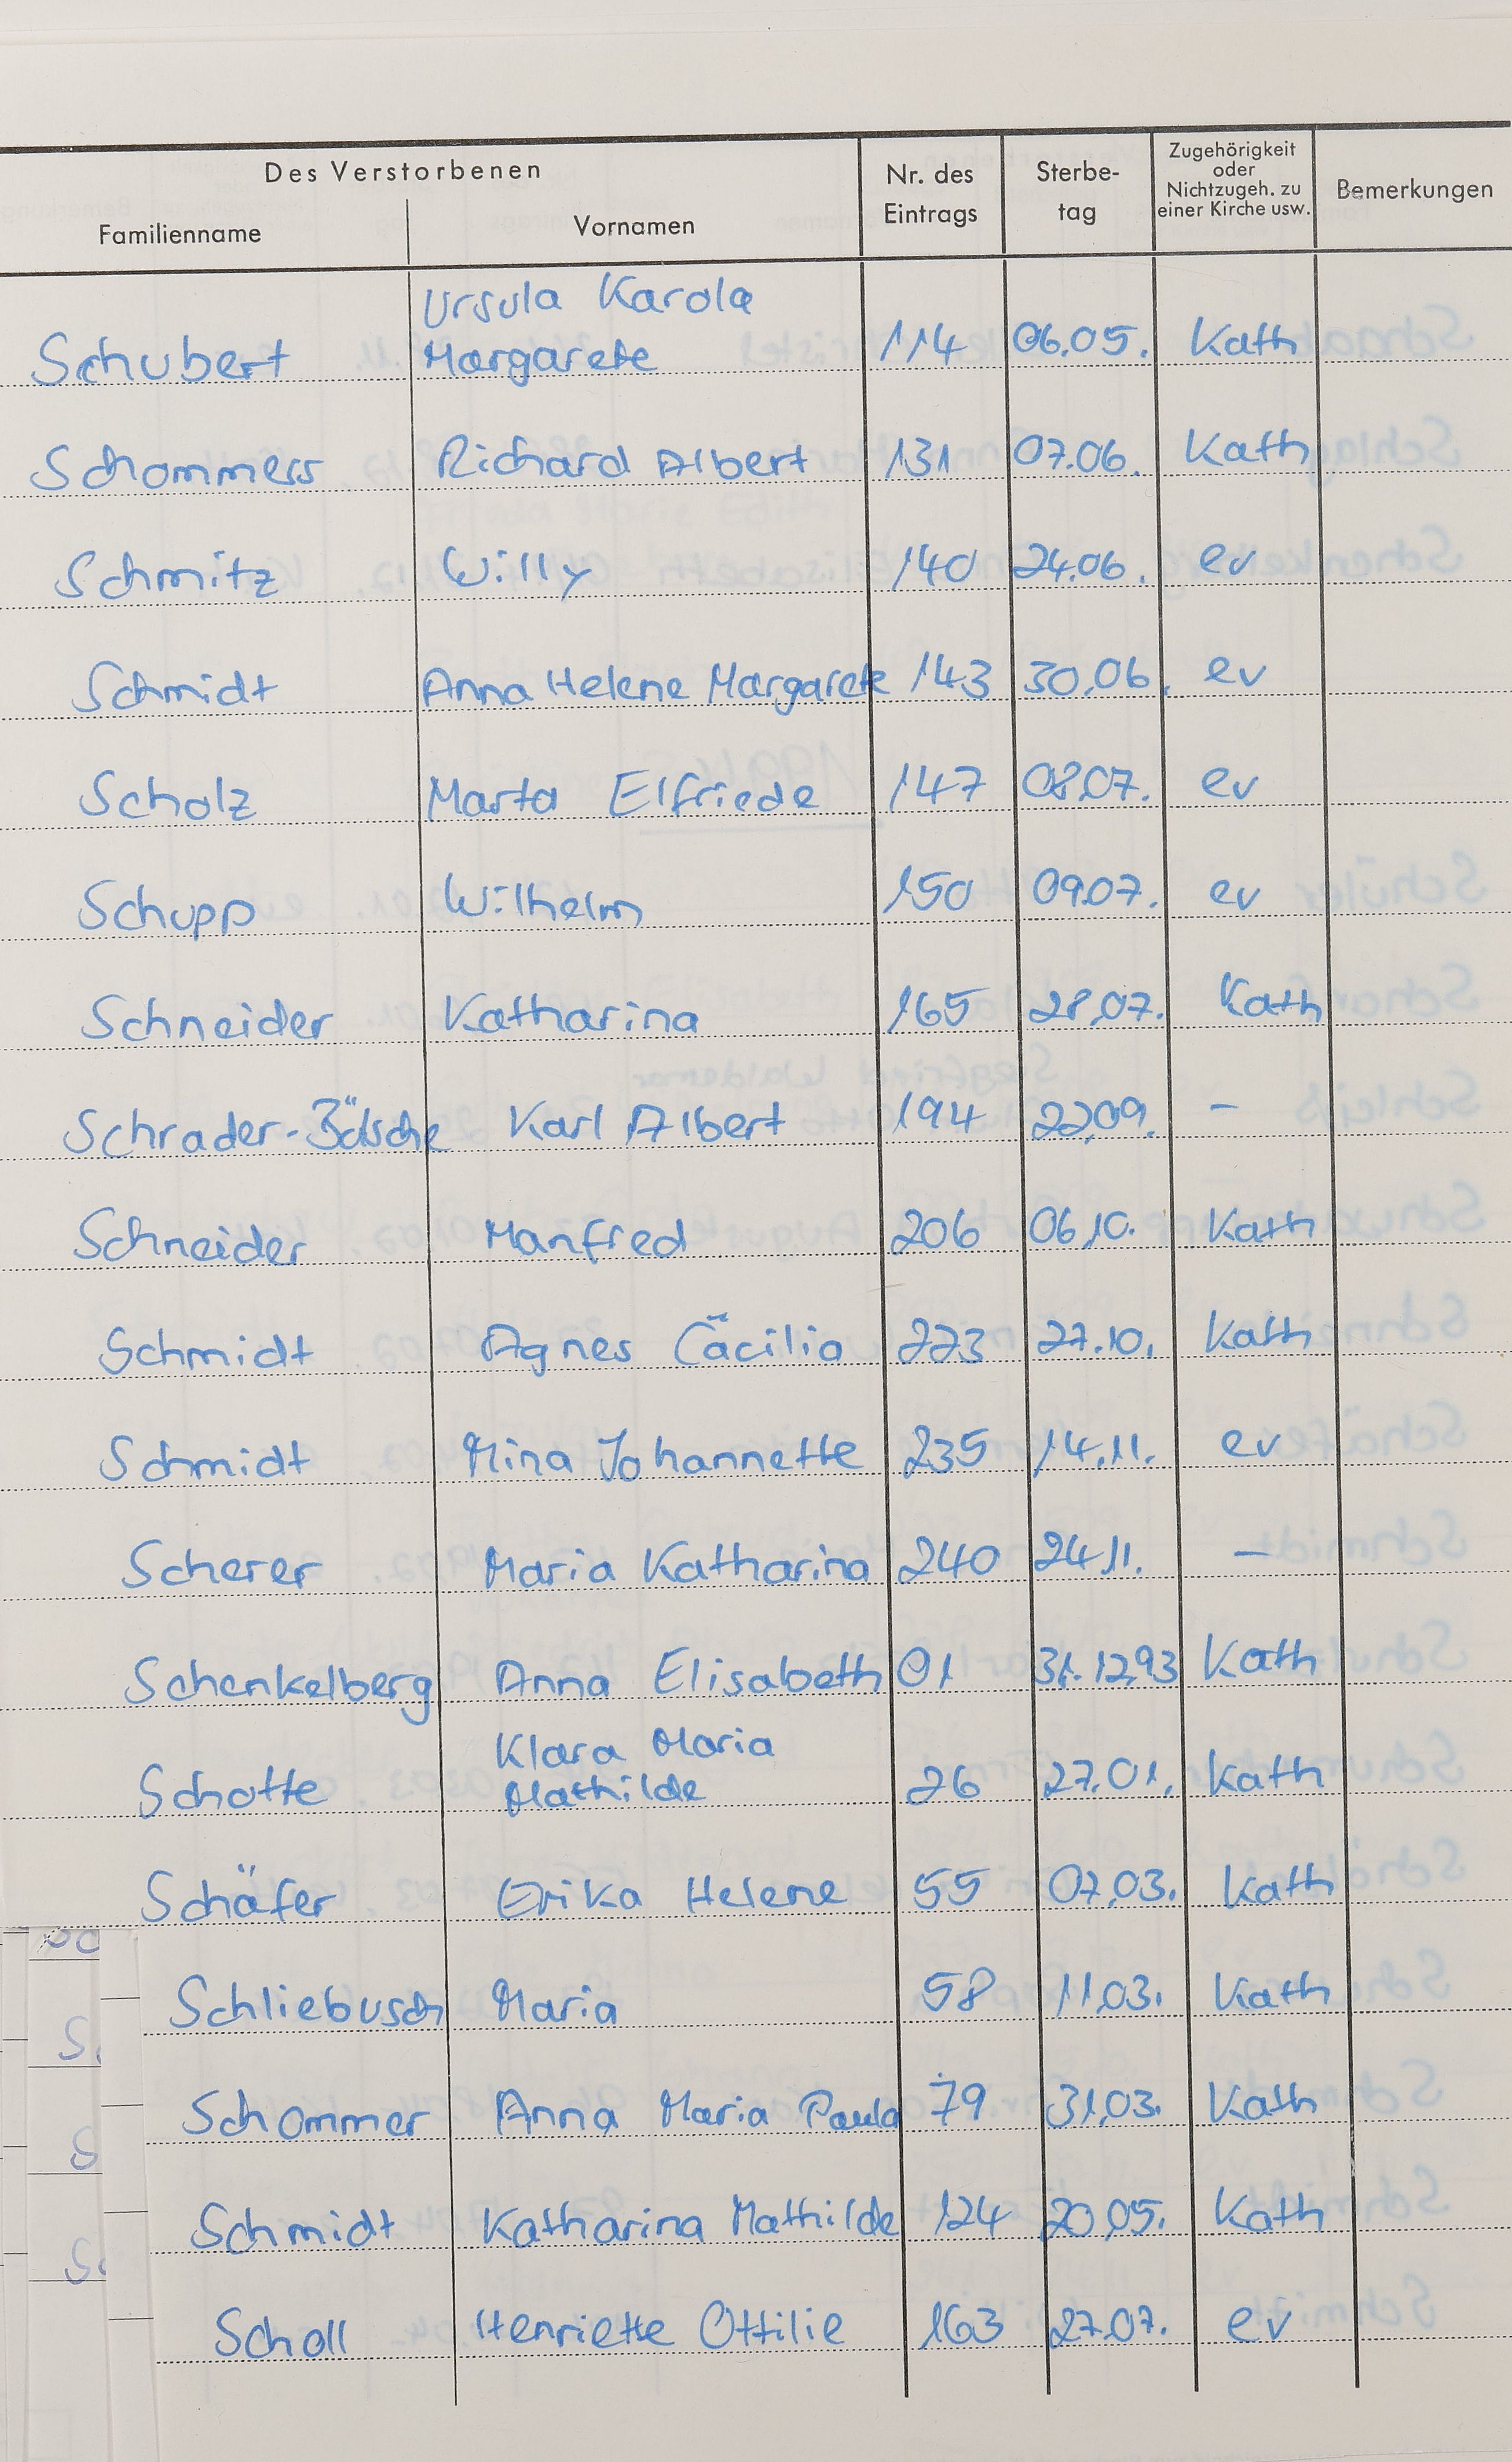 Des Verstorbenen
Familienname Vornamen Nr. des Eintrags Sterbe-tag Zugehörigkeit oder Nichtzugeh. zu einer Kirche usw. Bemerkungen
Ursula Karola
Schubert Margarete 114 06.05. Kath
Schommers Richard Albert 131 07.06. Kath
Schmitz Willy 140 24.06. ev
Schmidt Anna Helene Margarete 143 30.06. ev
Scholz Marta Elfriede 147 08.07. ev
Schupp Wilhelm 150 09.07. ev
Schneider Katharina 165 28.07. Kath
Schrader- Karl Albert 194 22.09. –
Schneider Manfred 206 06.10. Kath
Schmidt Agnes Cäcilia 223 27.10. Kath
Schmidt Mina Johannette 235 14.11. ev
Scherer Maria Katharina 240 24.11. –
Schenkelberg Anna Elisabeth 01 31.12.93 Kath
Klara Maria
Schotte Mathilde 26 27.01. Kath
Schäfer Erika Helene 55 07.03. Kath
Schliebusch Maria 58 11.03. Kath
Schommer Anna Maria Paula 79 31.03. Kath
Schmidt Katharina Mathilde 124 20.05. Kath
Scholl Henriette Ottilie 163 27.07. ev